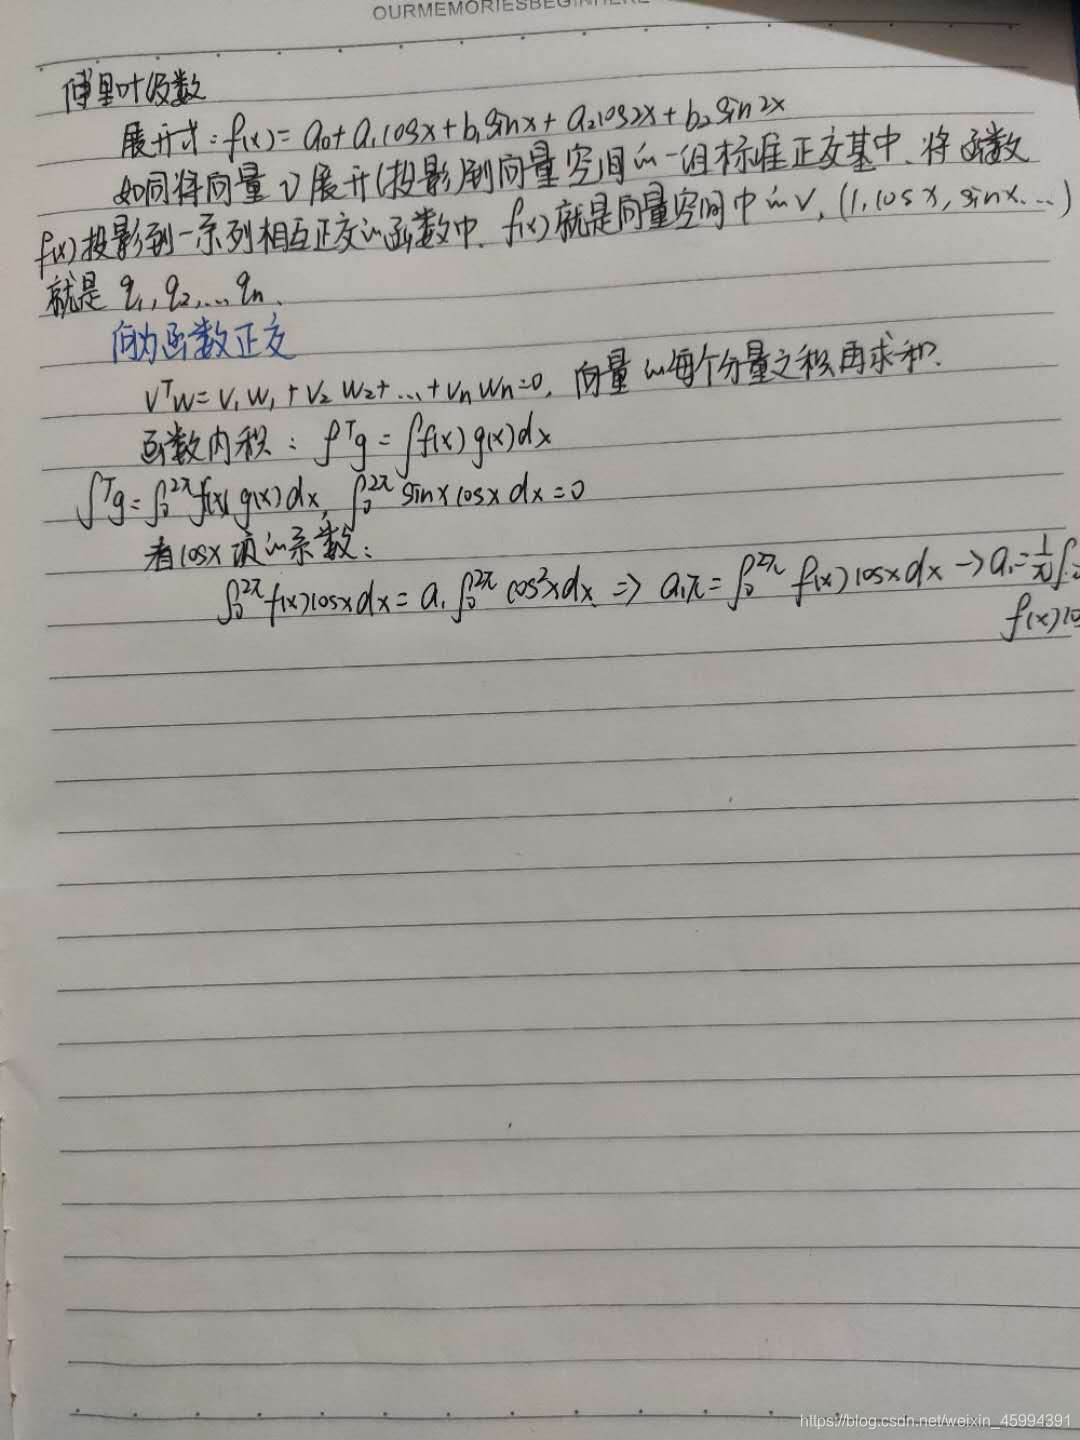 OURMEMORIESBEGINHERE
傅里叶级数
展开式：f(x) = a₀+ a₁cosx + b₁sinx + a₂cos2x + b₂sin2x
如同将向量v展开(投影)到向量空间的一组标准正交基中、将函数
f(x)投影到一系列相互正交的函数中、f(x)就是向量空间中的v, (1, cosx, sinx...)
就是 q₁, q₂, ... qₙ、
何为函数正交
vᵀw = v₁w₁ + v₂w₂ + ... + vₙwₙ = 0, 向量的每个分量之积再求和、
函数内积：fᵀg = ∫f(x)g(x)dx
fᵀg = ∫₀²ᵖ f(x)g(x)dx, ∫₀²ᵖ sinxcosxdx = 0
看cosx项的系数：
∫₀²ᵖ f(x)cosxdx = a₁∫₀²ᵖ cos²xdx ⇒ a₁π = ∫₀²ᵖ f(x)cosxdx → a₁ = 1/π ∫
f(x)co
https://blog.csdn.net/weixin_45994391